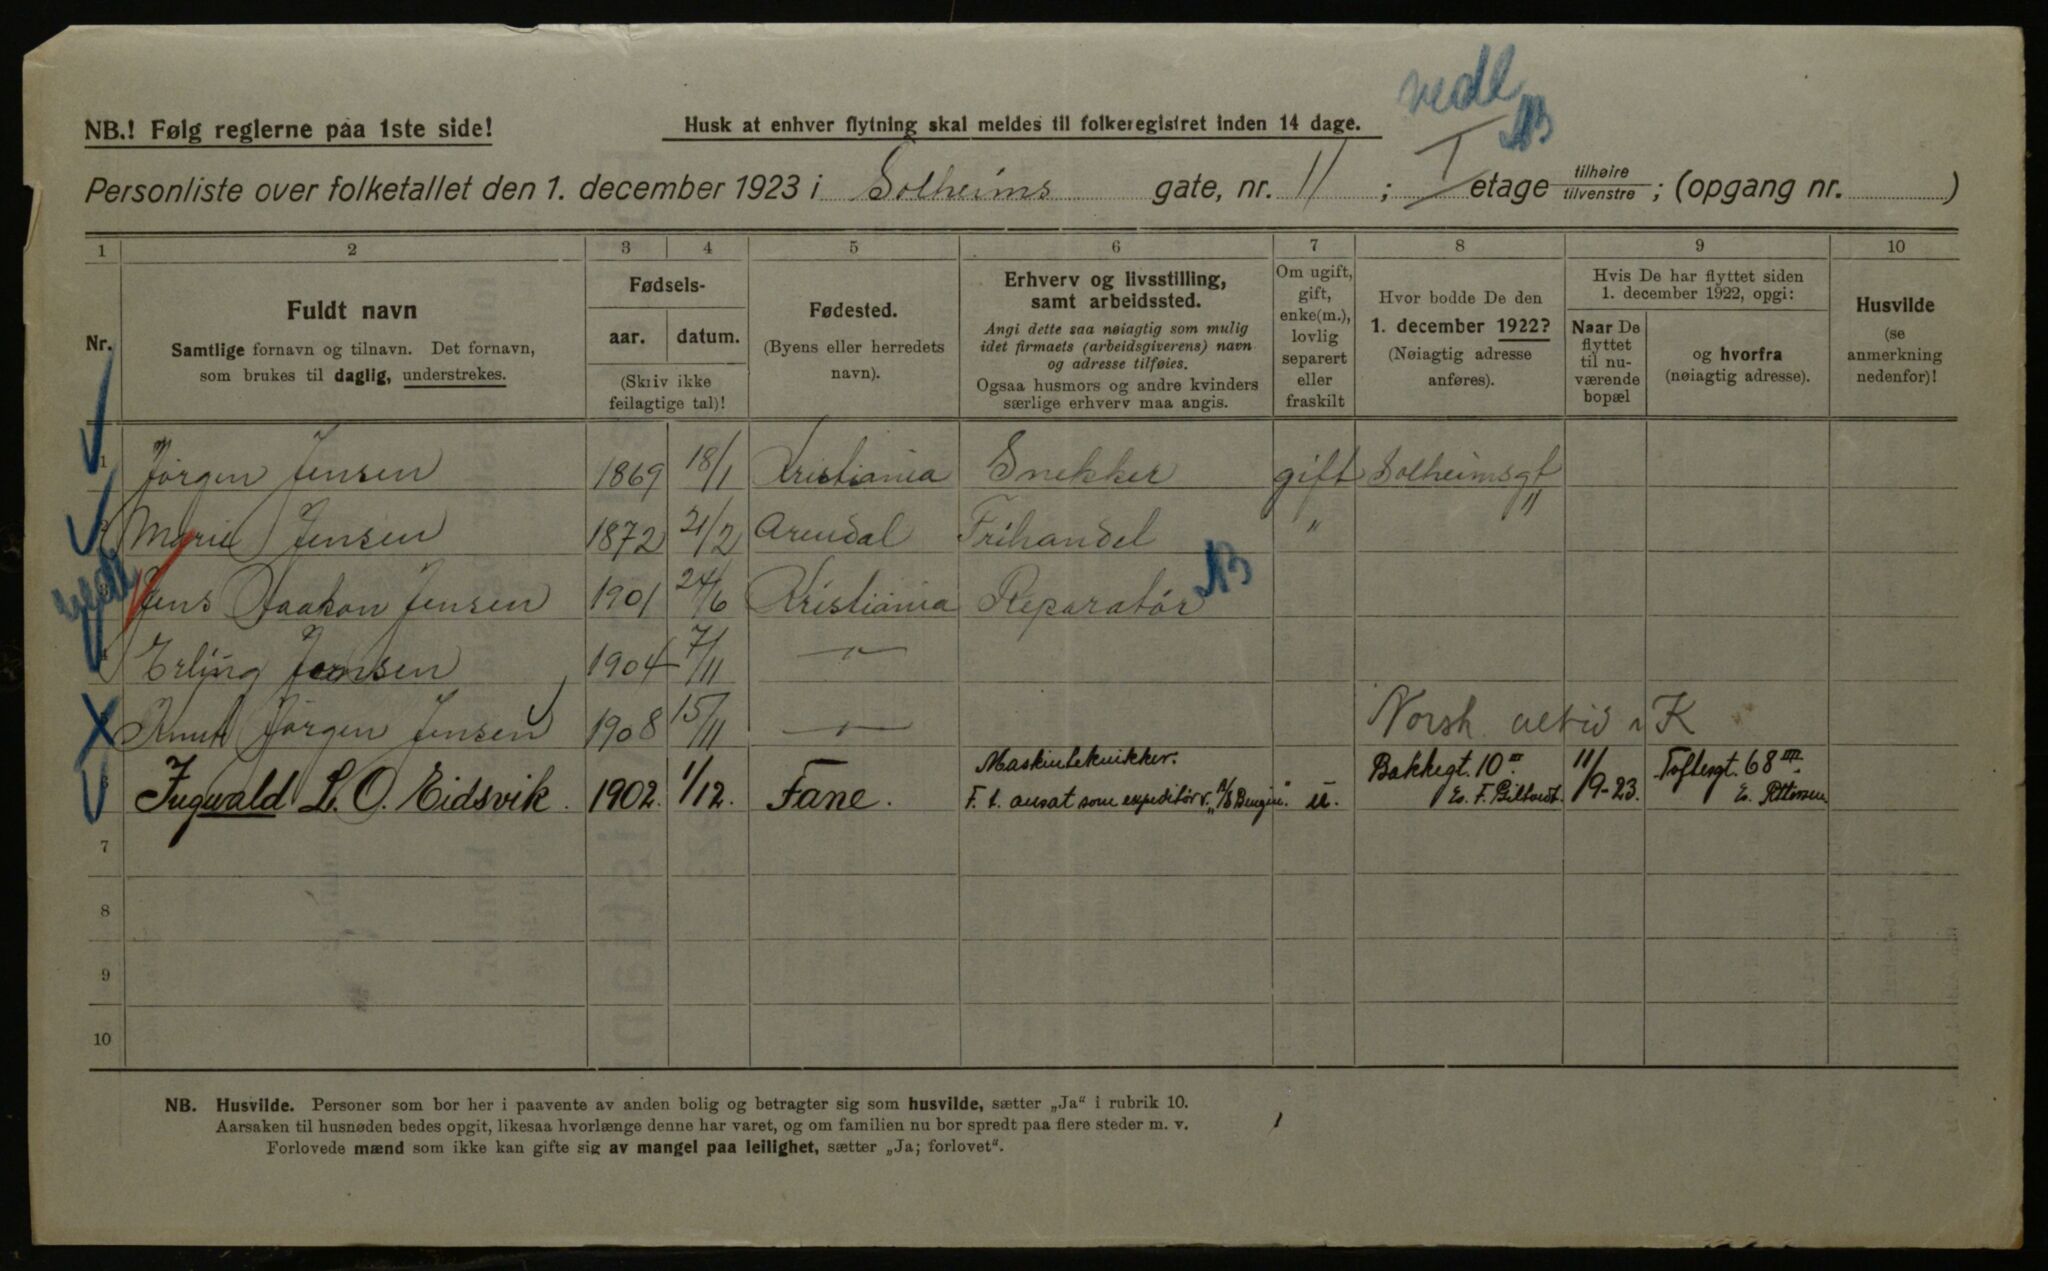 vedl
NB.! Følg reglerne paa 1ste side!
Husk at enhver flytning skal meldes til folkeregistret inden 14 dage.
Personliste over folketallet den 1. december 1923 i Solheims gate, nr. 11 ; I etage tilhøire tilvenstre ; (opgang nr. )
1 2 3 4 5 6 7 8 9 10
Nr.
Fuldt navn
Samtlige fornavn og tilnavn. Det fornavn,
som brukes til daglig, understrekes.
Fødsels-
aar. datum.
(Skriv ikke
feilagtige tal)!
Fødested.
(Byens eller herredets
navn).
Erhverv og livsstilling,
samt arbeidssted.
Angi dette saa nøiagtig som mulig
idet firmaets (arbeidsgiverens) navn
og adresse tilføies.
Ogsaa husmors og andre kvinders
særlige erhverv maa angis.
Om ugift,
gift,
enke(m.),
lovlig
separert
eller
fraskilt
Hvor bodde De den
1. december 1922?
(Nøiagtig adresse
anføres).
Hvis De har flyttet siden
1. december 1922, opgi:
Naar De
flyttet
til nu-
værende
bopæl
og hvorfra
(nøiagtig adresse).
Husvilde
(se
anmerkning
nedenfor)!
1 Jørgen Jensen 1869 18/1 Kristiania Snekker gift Solheimsgt
Marie Jensen 1872 21/2 Arendal Frihandel " "
Jens Haakon Jensen 1901 24/6 Kristiania Reparatør
4 Erling Jensen 1904 7/11 — " —
Knut Jørgen Jensen 1908 15/11 — " — Norsk altid K
Ingwald L. O. Eidsvik. 1902. 1/12. Fane. Maskinteknikker. F. t. ansat som expeditør v. „A/S Bengin" u. Bakkegt. 10 III 11/9-23. Toftesgt. 68 III
7
8
9
10
NB. Husvilde. Personer som bor her i paavente av anden bolig og betragter sig som husvilde, sætter „Ja“ i rubrik 10.
Aarsaken til husnøden bedes opgit, likesaa hvorlænge denne har varet, og om familien nu bor spredt paa flere steder m. v.
Forlovede mænd som ikke kan gifte sig av mangel paa leilighet, sætter „Ja; forlovet“.